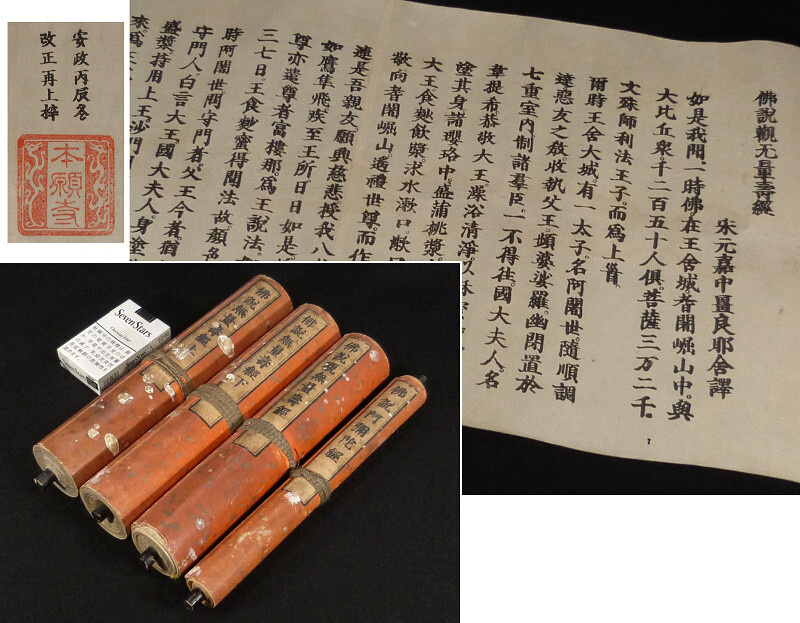 安政丙辰春
改正再上梓
本願寺
佛説觀无量壽經
宋元嘉中畺良耶舍譯
如是我聞。一時佛在王舍城耆闍崛山中。與
大比丘衆。千二百五十人俱。菩薩三万二千。
文殊師利法王子。而爲上首。
爾時王舍大城。有一太子。名阿闍世。隨順調
達惡友之敎。收執父王。頻婆娑羅。幽閉置於
七重室内。制諸羣臣。一不得往。國大夫人。名
韋提希。恭敬大王。澡浴清淨。以酥蜜
塗其身。諸瓔珞中。盛蒲桃漿。
大王食麨飲漿。求水漱口。漱口
敬向耆闍崛山。遙禮世尊。而作
連是吾親友。願興慈悲。授我八
如鷹隼飛。疾至王所。日日如是
尊亦遣尊者富樓那。爲王説法。
三七日。王食麨蜜。得聞法故。顔色
時阿闍世。問守門者。父王今者。猶
守門人。白言大王。國大夫人。身塗
盛漿。持用上王。沙門
來。爲王
佛説無量壽經上
佛説無量壽經下
佛説觀無量壽經
佛説阿彌陀經
SevenStars